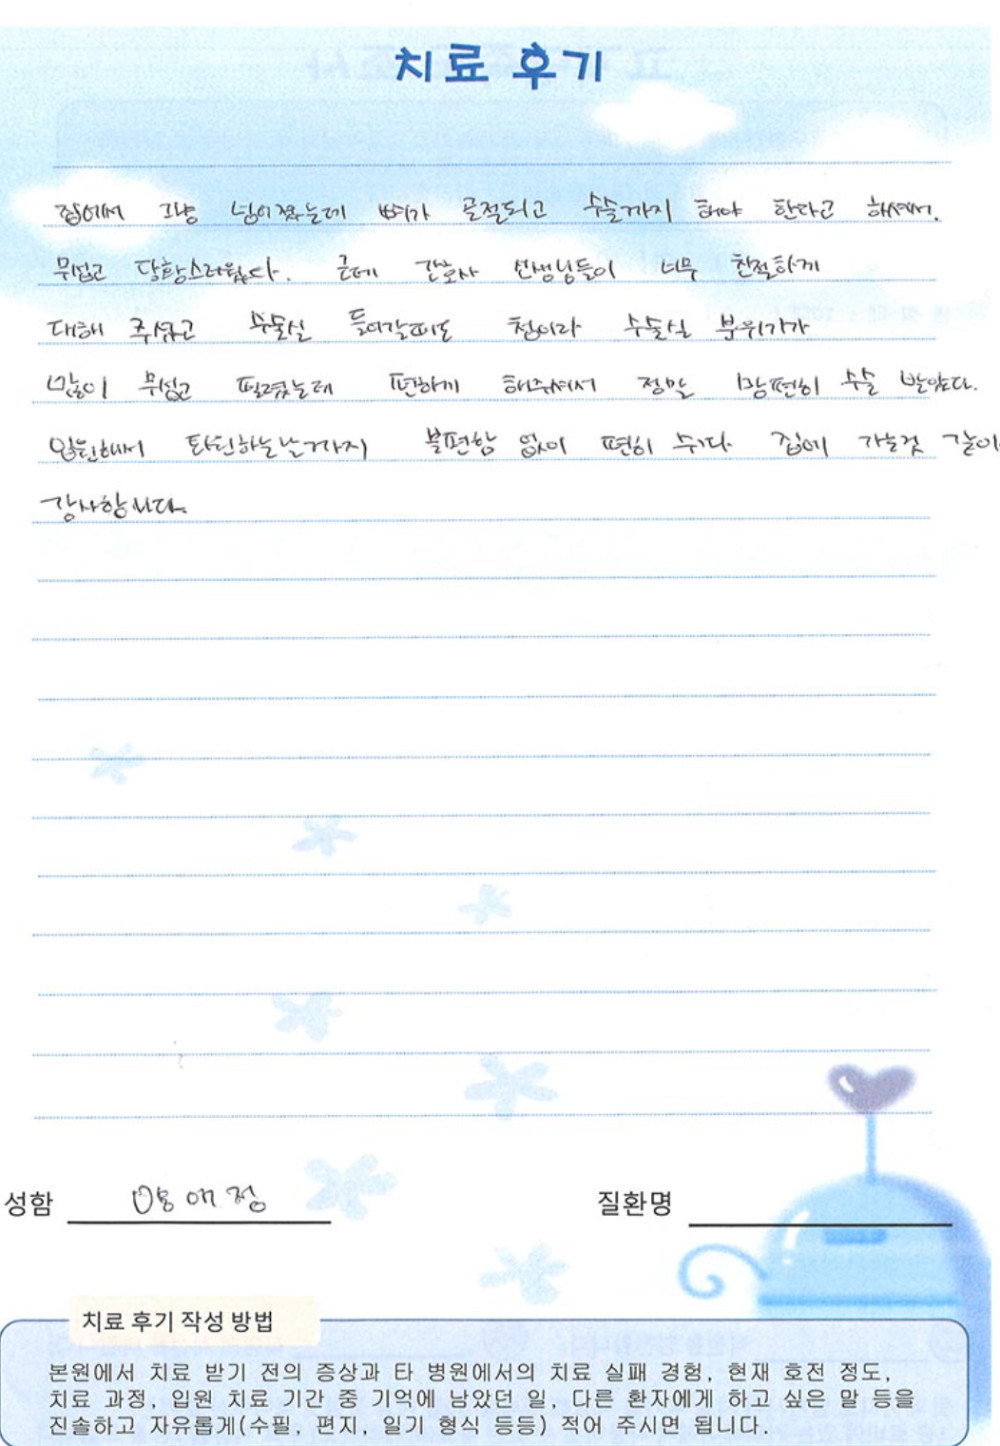 치료 후기
집에서 그냥 넘어졌는데 뼈가 골절되고 수술까지 해야 한다고 하셔서.
무섭고 당황스러웠다. 근데 간호사 선생님들이 너무 친절하게
대해 주셨고 수술실 들어갈때도 첨이라 수술실 분위기가
많이 무섭고 떨렸는데 편하게 해주셔서 정말 맘편히 수술 받았다.
입원해서 퇴원하는날까지 불편함 없이 편히 쉬다 집에 가는것 같아
감사합니다.
성함 애정
질환명
치료 후기 작성 방법
본원에서 치료 받기 전의 증상과 타 병원에서의 치료 실패 경험, 현재 호전 정도,
치료 과정, 입원 치료 기간 중 기억에 남았던 일, 다른 환자에게 하고 싶은 말 등을
진솔하고 자유롭게(수필, 편지, 일기 형식 등등) 적어 주시면 됩니다.